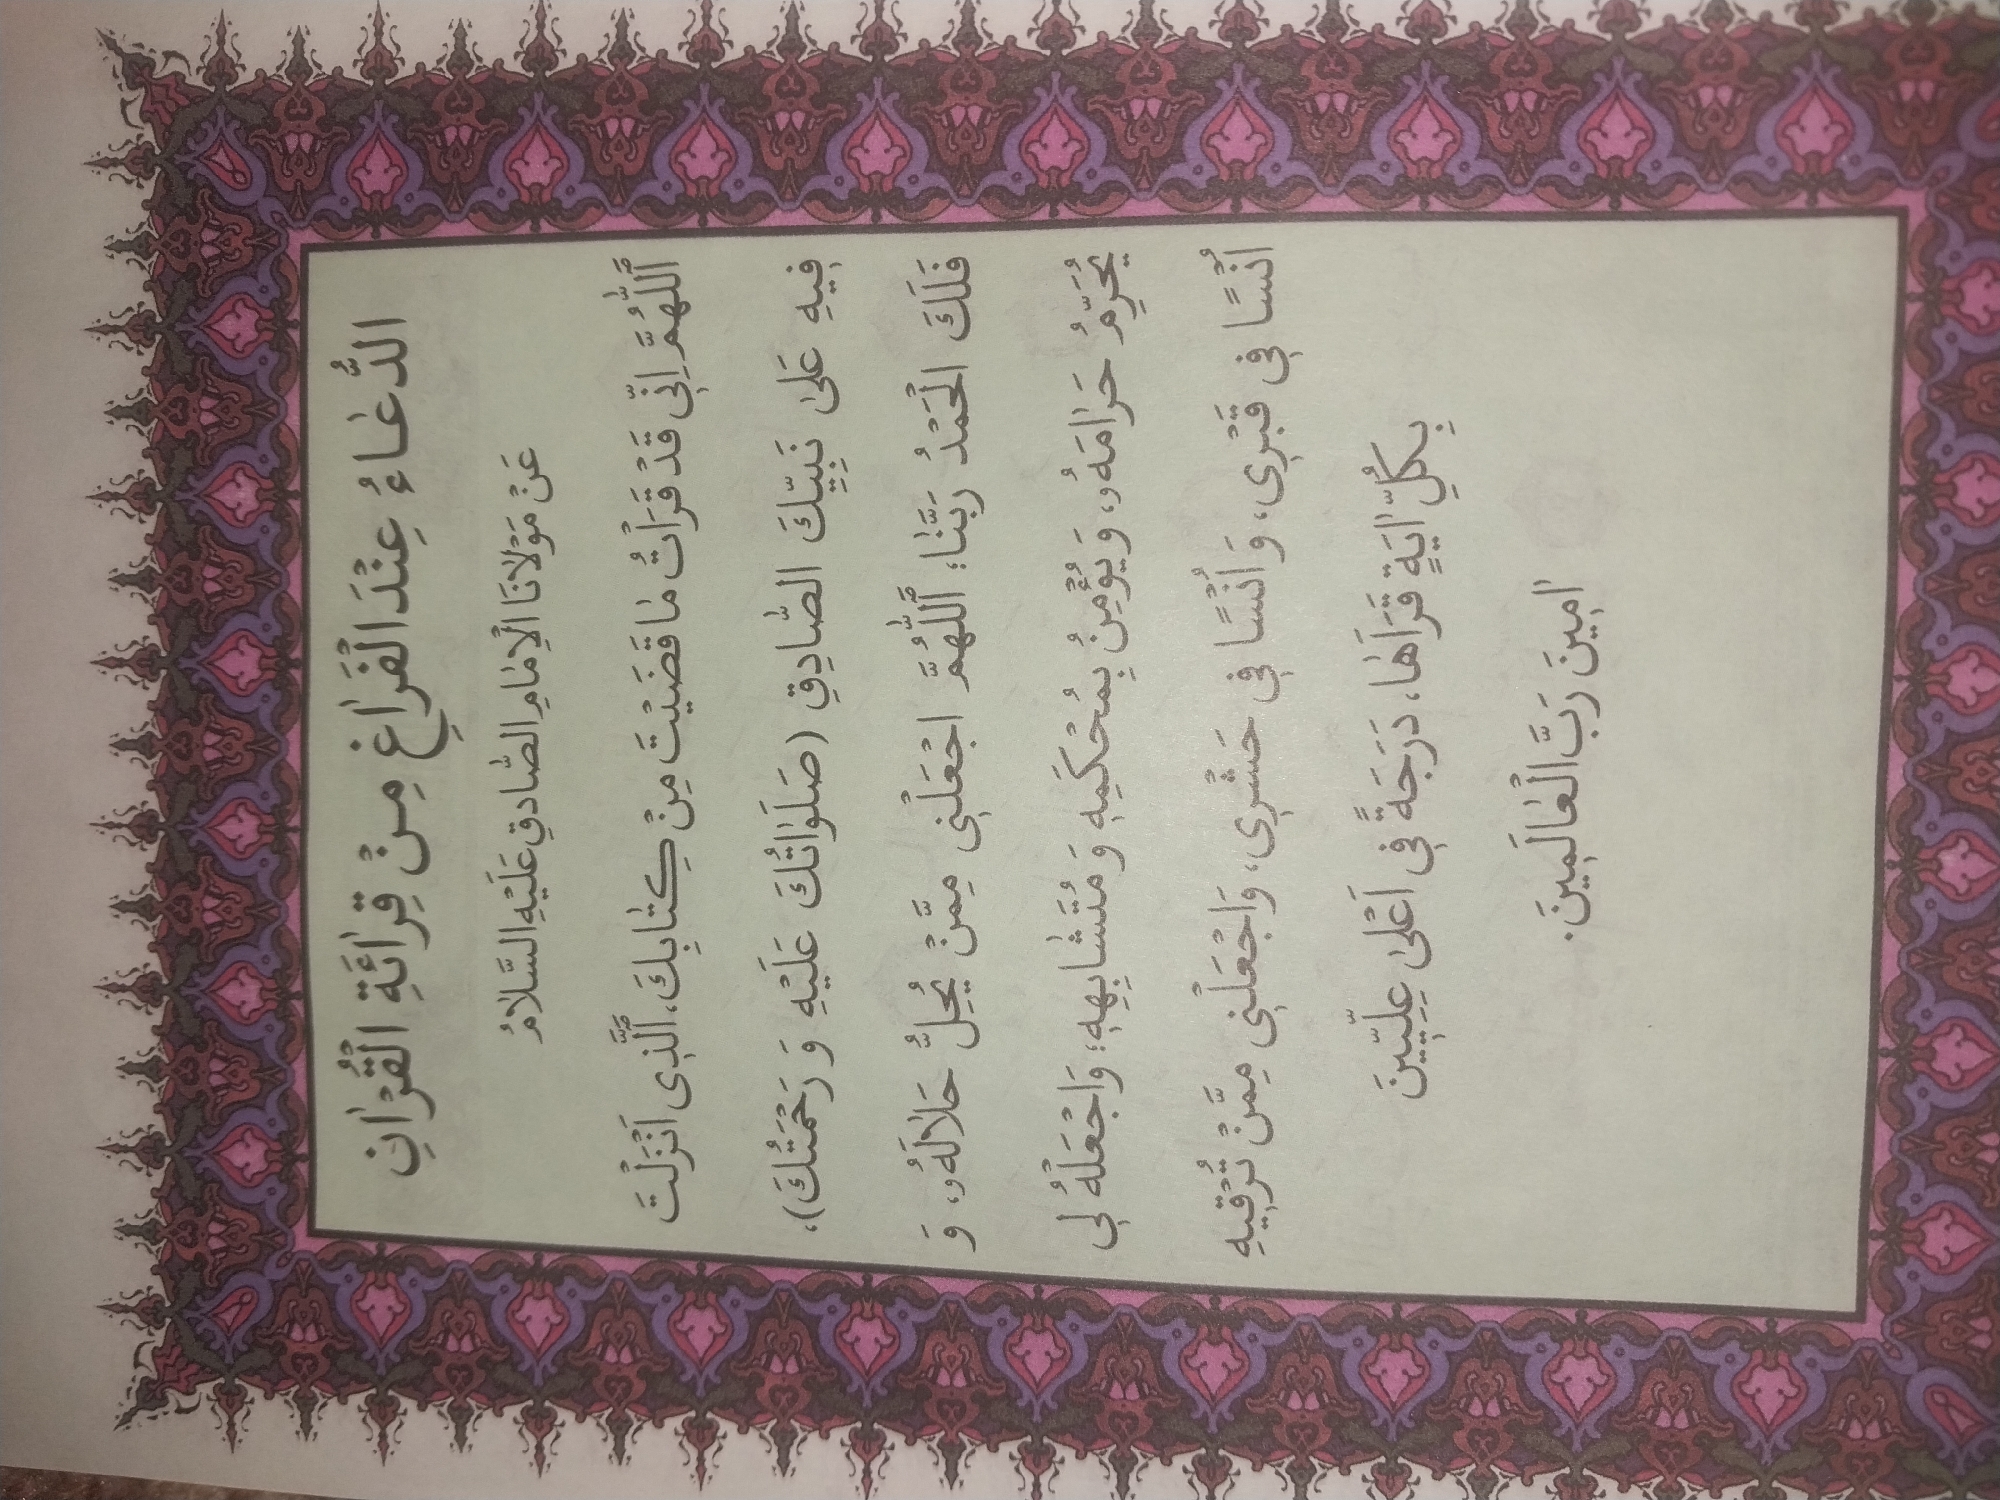 الدُّعٰاءُ عِنْدَ الْفَرٰاغِ مِنْ قِرٰائَةِ الْقُرْاٰنِ
عَنْ مَوْلاٰنَا الْاِمٰامِ الصّٰادِقِ عَلَيْهِ السَّلاٰمُ
اَللّٰهُمَّ اِنّٖى قَدْ قَرَاْتُ مٰا قَضَيْتَ مِنْ كِتٰابِكَ، اَلَّذٖى اَنْزَلْتَ
فٖيهِ عَلىٰ نَبِيِّكَ الصّٰادِقِ (صَلَوٰاتُكَ عَلَيْهِ وَ رَحْمَتُكَ)،
فَلَكَ الْحَمْدُ رَبَّنٰا؛ اَللّٰهُمَّ اجْعَلْنٖى مِمَّنْ يُحِلُّ حَلاٰلَهُۥ، وَ
يُحَرِّمُ حَرٰامَهُۥ، وَ يُؤْمِنُ بِمُحْكَمِهٖ وَ مُتَشٰابِهِهٖ؛ وَاجْعَلْهُ لٖى
اُنْسًا فٖى قَبْرٖى، وَ اُنْسًا فٖى حَشْرٖى، وَاجْعَلْنٖى مِمَّنْ تُرْقٖيهِ
بِكُلِّ اٰيَةٍ قَرَاَهٰا، دَرَجَةً فٖى اَعْلىٰ عِلِّيّٖينَ
اٰمٖينَ رَبَّ الْعٰالَمٖينَ.